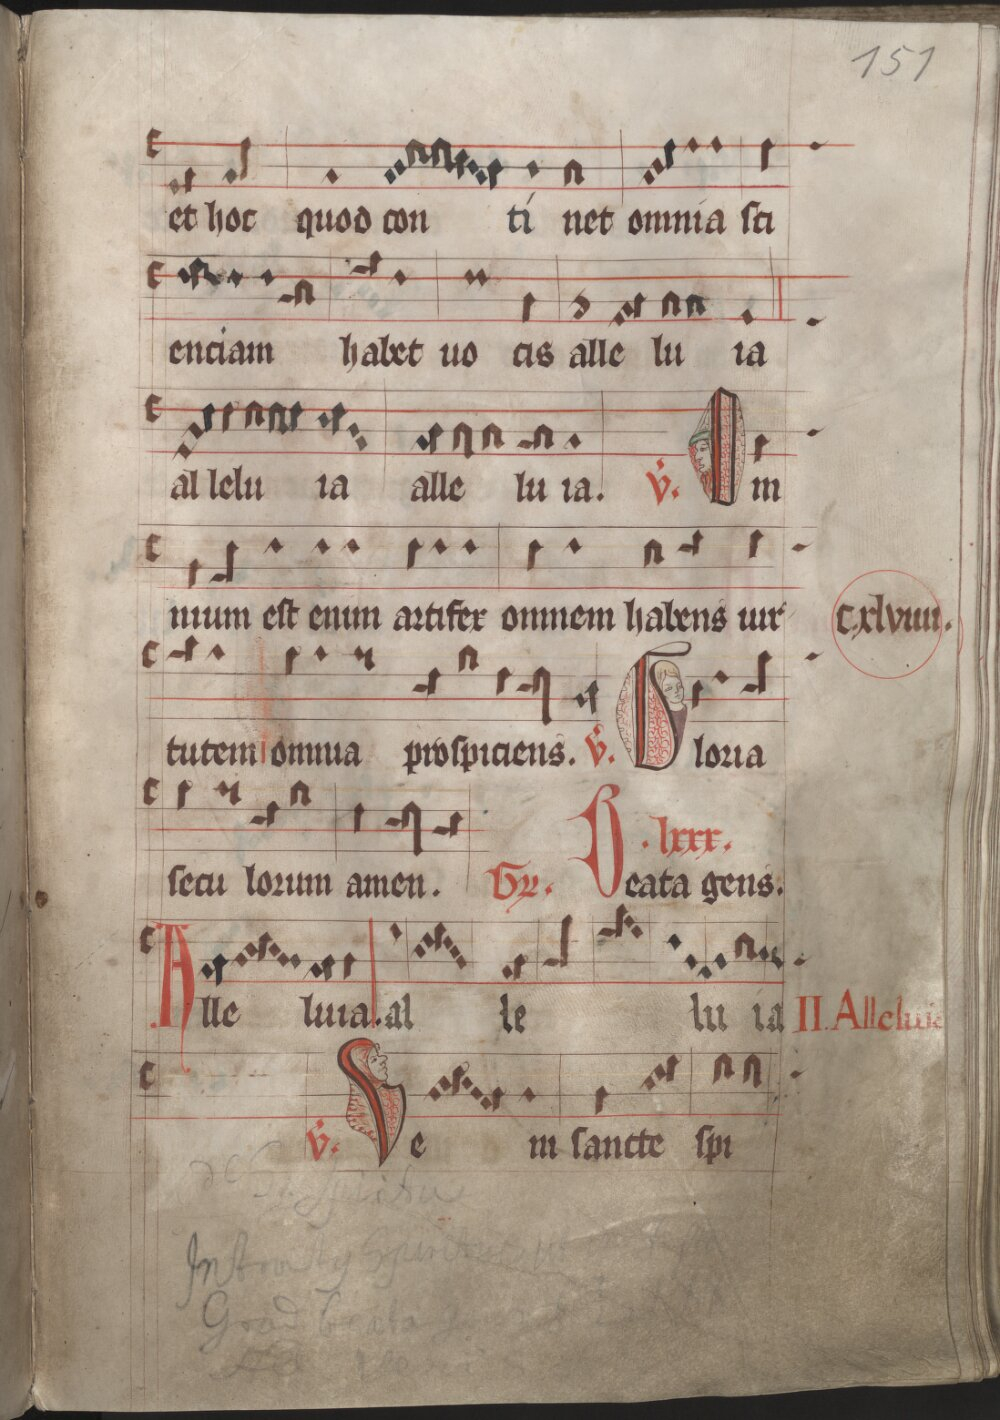 151
et hoc quod con ti net omnia sci
enciam habet uo cis alle lu ia
al lelu ia alle lu ia. v. O m
nium est enim artifex omnem habens uir
c.xlviiii.
tutem omnia prospiciens. v. G loria
secu lorum amen. Gr. Beata gens.
.lxxx.
Alle luia. al le lu ia II. Alleluia
v. Ve ni sancte spi
Spiritu
Grad beata